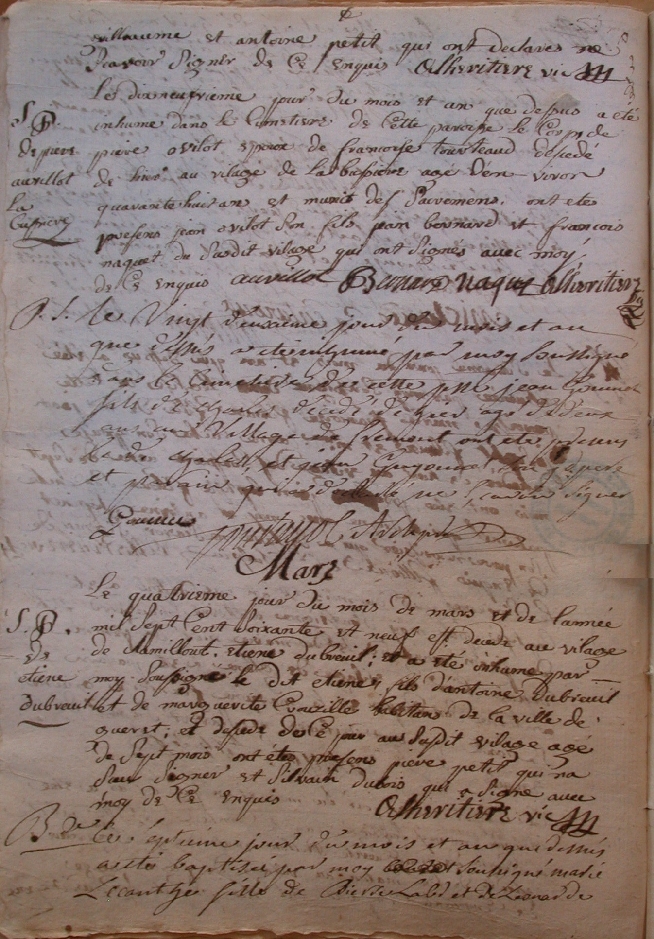 villaume et antoine petit qui ont declares ne
scavoir signer de ce enquis Alheritiere vic
Le dixneufvieme jour du mois et an que dessus a été
S. P. inhumé dans le cimetiere de cette paroisse le corps de
de piere piere ovilot epoux de françoise tourteaud decedé
auvillot de hier au vilage de La bussiere agé d'en viron
La quarante huit ans et munit des sacremens. ont etes
bussiere presens jean ovilot son fils jean bernard et françois
naquet du susdit vilage qui ont signes avec moy
de ce enquis auvillot Bernard naquet Alheritiere
P. S. Le Vingt deuxieme jour du mois et an
que dessus a été inhumé par moy soussigné
dans le cimetiere de cette psse jean
fils de Charles décédé d'hier agé de deux
ans au village de fremont ont été présens
Charles, et son père
et parain qui ont déclaré ne scavoir signer
Mars
Le quatrieme jour du mois de mars et de l'année
S. P. mil sept cent soixante et neuf est decede au vilage
de de clamillout, etiene dubreuil; et a été inhumé par
etiene moy soussigne le dit etiene, fils d'antoine dubreuil
dubreuil et de marguerite Crouzille habitans de la ville de
gueret, et decede de ce jour au susdit vilage agé
de sept mois ont étes presens piere petit qui n'a
sceu signer et Silvain dubois qui a signé avec
moy de ce enquis Alheritiere vic
B. Le septieme jour du mois et an que dessus
a esté baptisée par moy soussigné marie
fille de Pierre et de Leonarde